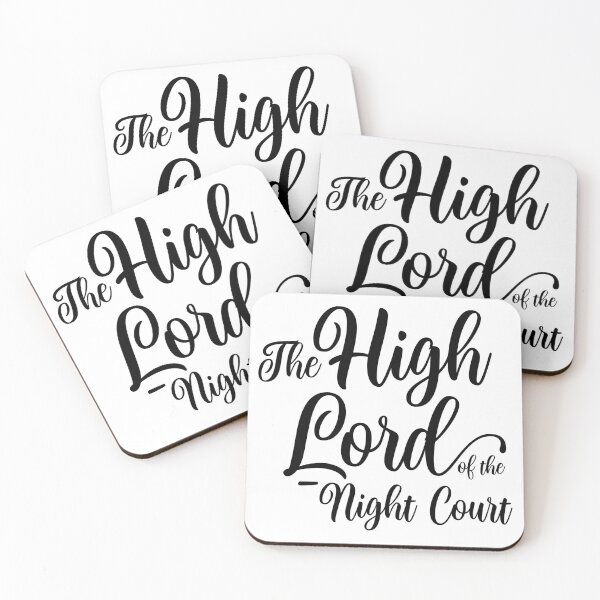 The High
Lord
The High
Lord of the
The High
Lord
Night
The High
Lord of the
Night Court